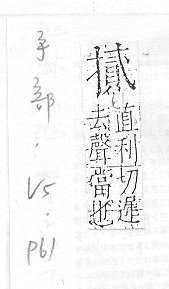 直利切遲
去聲當也
手部，V5．P61